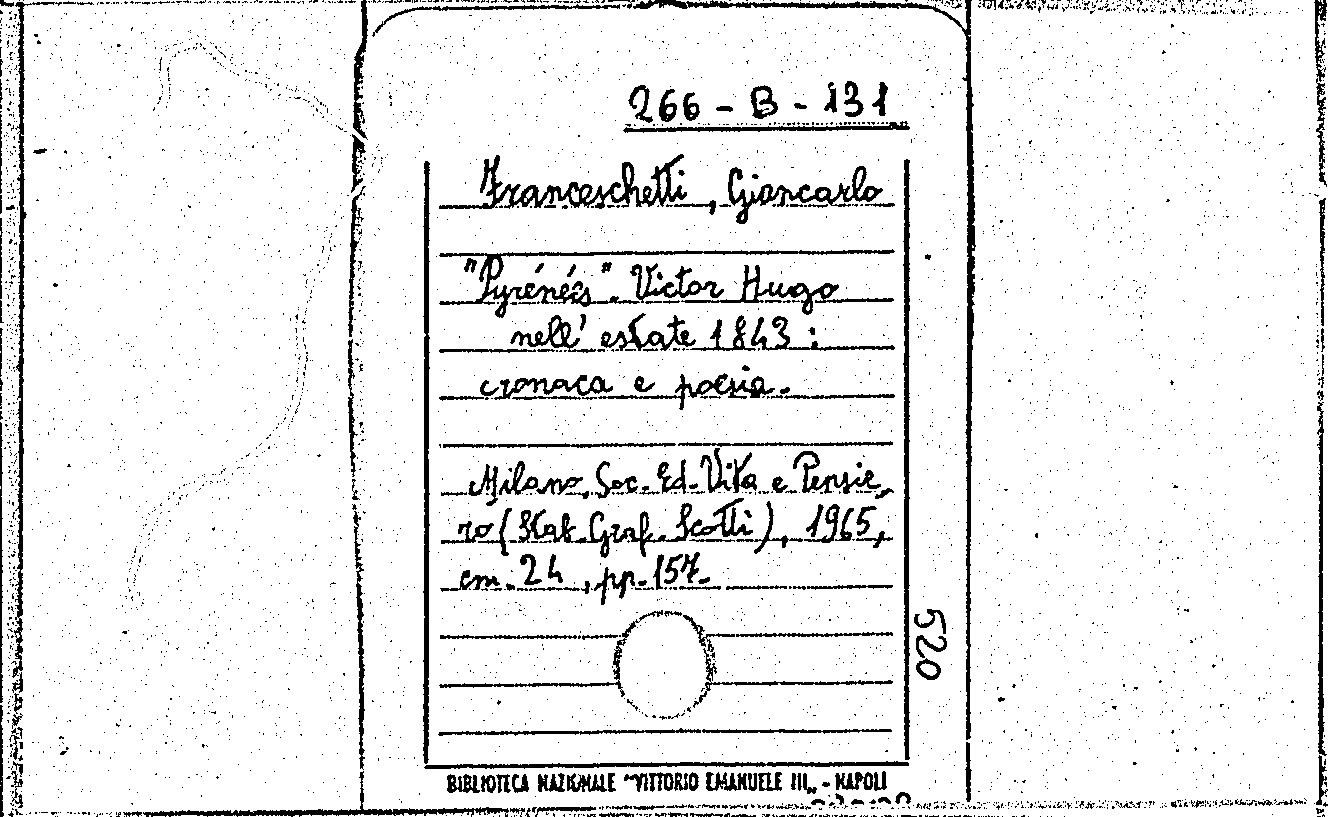 266 - B - 131
Franceschetti, Giancarlo
"Pyrénées". Victor Hugo
nell' estate 1843 :
cronaca e poesia.
Milano, Soc. Ed. Vita e Pensie,
ro (Stab. Graf. Scotti), 1965,
cm. 24, pp. 157.
520
BIBLIOTECA NAZIONALE "VITTORIO EMANUELE III„ - NAPOLI